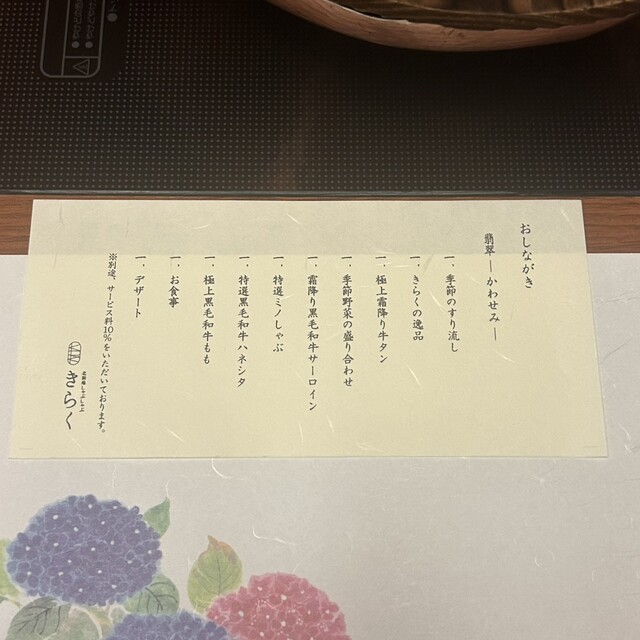 おしながき
翡翠―かわせみ―
一．季節のすり流し
一．きらくの逸品
一．極上霜降り牛タン
一．季節野菜の盛り合わせ
一．霜降り黒毛和牛サーロイン
一．特選ミノしゃぶ
一．特選黒毛和牛ハネシタ
一．極上黒毛和牛もも
一．お食事
一．デザート
※別途、サービス料10％をいただいております。
きらく